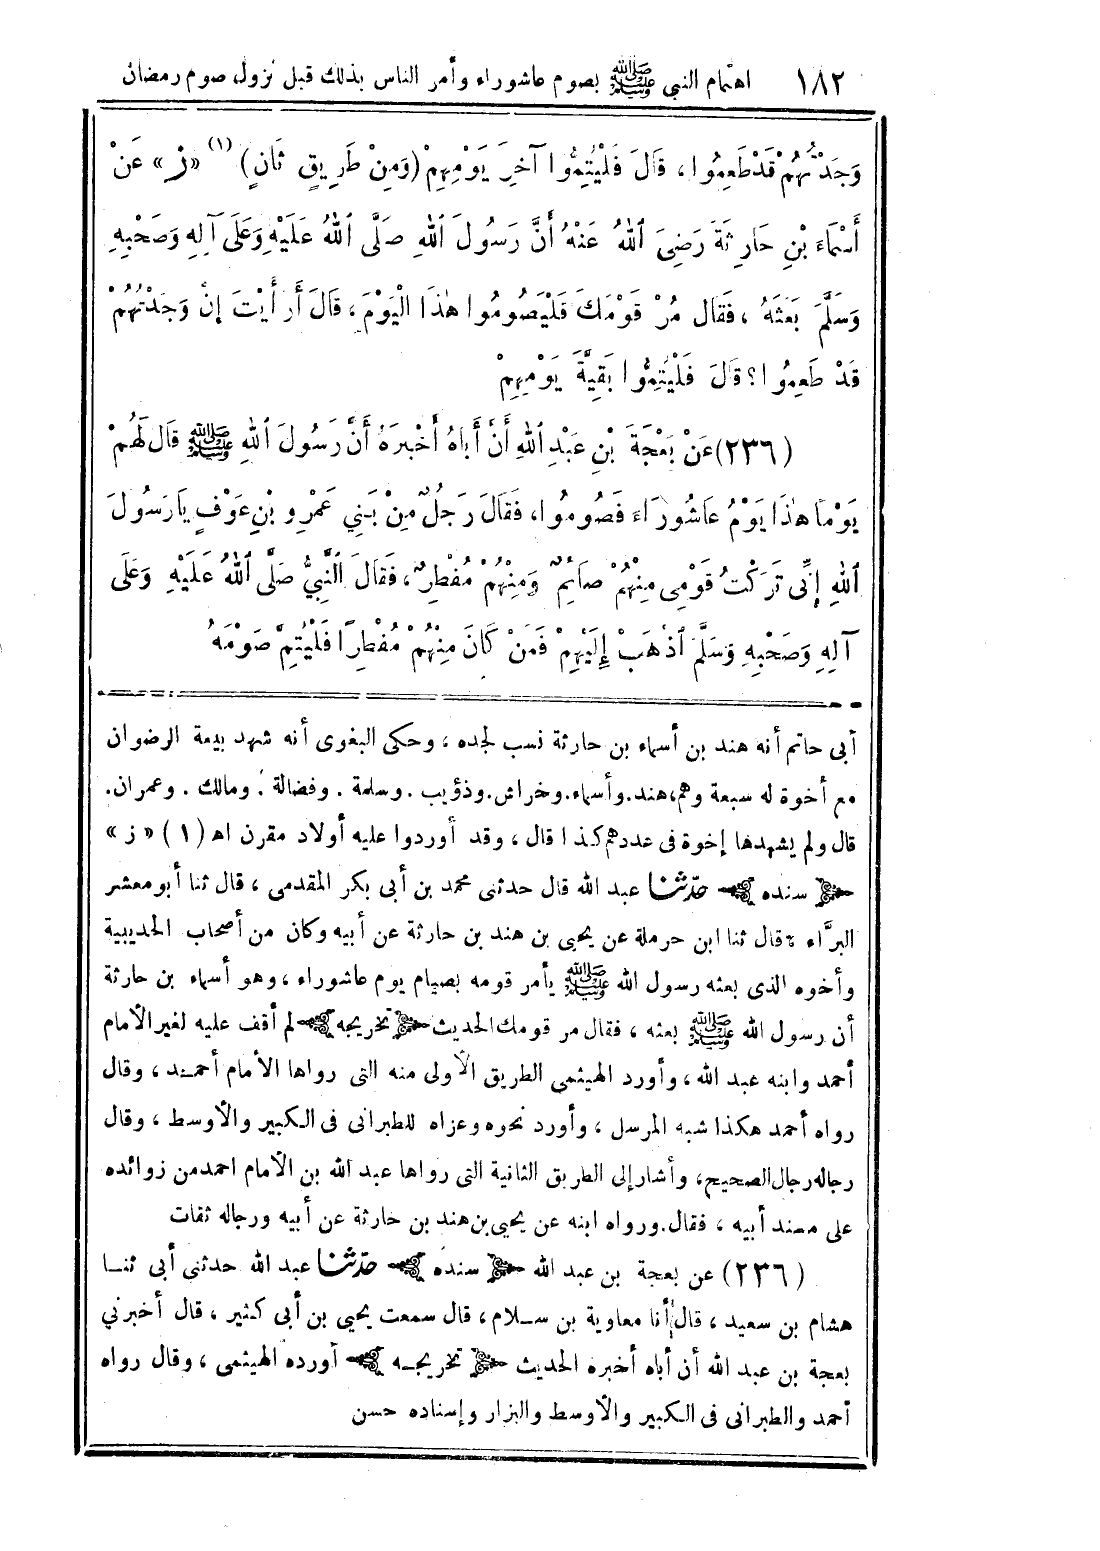 ١٨٢ اهتمام النبي ﷺ بصوم عاشوراء وأمر الناس بذلك قبل نزول صوم رمضان
وَجَدْتُهُمْ قَدْ طَعِمُوا، قَالَ فَلْيُتِمُّوا آخِرَ يَوْمِهِمْ (وَمِنْ طَرِيقٍ ثَانٍ) (١) «ز» عَنْ
أَسْمَاءَ بْنِ حَارِثَةَ رَضِيَ اللهُ عَنْهُ أَنَّ رَسُولَ اللهِ صَلَّى اللهُ عَلَيْهِ وَعَلَى آلِهِ وَصَحْبِهِ
وَسَلَّمَ بَعَثَهُ، فَقَالَ مُرْ قَوْمَكَ فَلْيَصُومُوا هٰذَا الْيَوْمَ، قَالَ أَرَأَيْتَ إِنْ وَجَدْتُهُمْ
قَدْ طَعِمُوا؟ قَالَ فَلْيُتِمُّوا بَقِيَّةَ يَوْمِهِمْ
(٢٣٦) عَنْ بَعْجَةَ بْنِ عَبْدِ اللهِ أَنَّ أَبَاهُ أَخْبَرَهُ أَنَّ رَسُولَ اللهِ ﷺ قَالَ لَهُمْ
يَوْمًا هٰذَا يَوْمُ عَاشُورَاءَ فَصُومُوا، فَقَالَ رَجُلٌ مِنْ بَنِي عَمْرِو بْنِ عَوْفٍ يَارَسُولَ
اللهِ إِنِّى تَرَكْتُ قَوْمِى مِنْهُمْ صَائِمٌ وَمِنْهُمْ مُفْطِرٌ، فَقَالَ النَّبِيُّ صَلَّى اللهُ عَلَيْهِ وَعَلَى
آلِهِ وَصَحْبِهِ وَسَلَّمَ اذْهَبْ إِلَيْهِمْ فَمَنْ كَانَ مِنْهُمْ مُفْطِرًا فَلْيُتِمَّ صَوْمَهُ
أبى حاتم أنه هند بن أسماء بن حارثة نسب لجده، وحكى البغوى أنه شهد بيعة الرضوان
مع أخوة له سبعة وهم، هند. وأسماء. وخراش. وذؤيب. وسلمة. وفضالة. ومالك. وعمران.
قال ولم يشهدها إخوة فى عددهم كذا قال، وقد أوردوا عليه أولاد مقرن اه (١) «ز»
﴿سنده﴾ حدّثنا عبد الله قال حدثنى محمد بن أبى بكر المقدمى، قال ثنا أبو معشر
البرَّاء قال ثنا ابن حرملة عن يحيى بن هند بن حارثة عن أبيه وكان من أصحاب الحديبية
وأخوه الذى بعثه رسول الله ﷺ يأمر قومه بصيام يوم عاشوراء، وهو أسماء بن حارثة
أن رسول الله ﷺ بعثه، فقال مر قومك الحديث ﴿تخريجه﴾ لم أقف عليه لغير الأمام
أحمد وابنه عبد الله، وأورد الهيثمى الطريق الأولى منه التى رواها الأمام أحمد، وقال
رواه أحمد هكذا شبه المرسل، وأورد نحوه وعزاه للطبرانى فى الكبير والأوسط، وقال
رجاله رجال الصحيح، وأشار إلى الطريق الثانية التى رواها عبد الله بن الأمام احمد من زوائده
على مسند أبيه، فقال. ورواه ابنه عن يحيى بن هند بن حارثة عن أبيه ورجاله ثقات
(٢٣٦) عن بعجة بن عبد الله ﴿سنده﴾ حدّثنا عبد الله حدثنى أبى ثنا
هشام بن سعيد، قال أنا معاوية بن سلام، قال سمعت يحيى بن أبى كثير، قال أخبرني
بعجة بن عبد الله أن أباه أخبره الحديث ﴿تخريجه﴾ أورده الهيثمى، وقال رواه
أحمد والطبرانى فى الكبير والأوسط والبزار وإسناده حسن